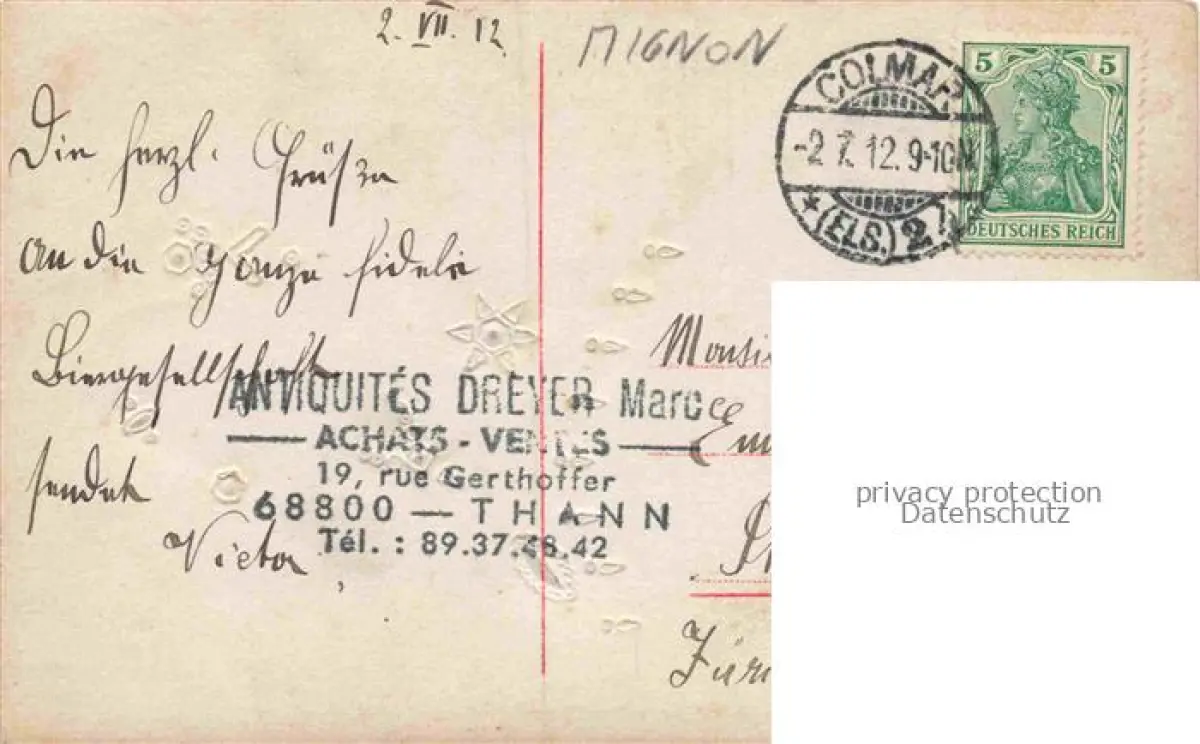 2. VII. 12
MIGNON
COLMAR
-2.7.12.9-10N.
(ELS.) 2
5 5
DEUTSCHES REICH
Die herzl. Grüße
an die ganze fidele
Biergesellschaft
sendet
Victor
ANTIQUITÉS DREYER Marc
ACHATS - VENTES
19, rue Gerthoffer
68800 — THANN
Tél. : 89.37.48.42
Monsi
Em
privacy protection
Datenschutz